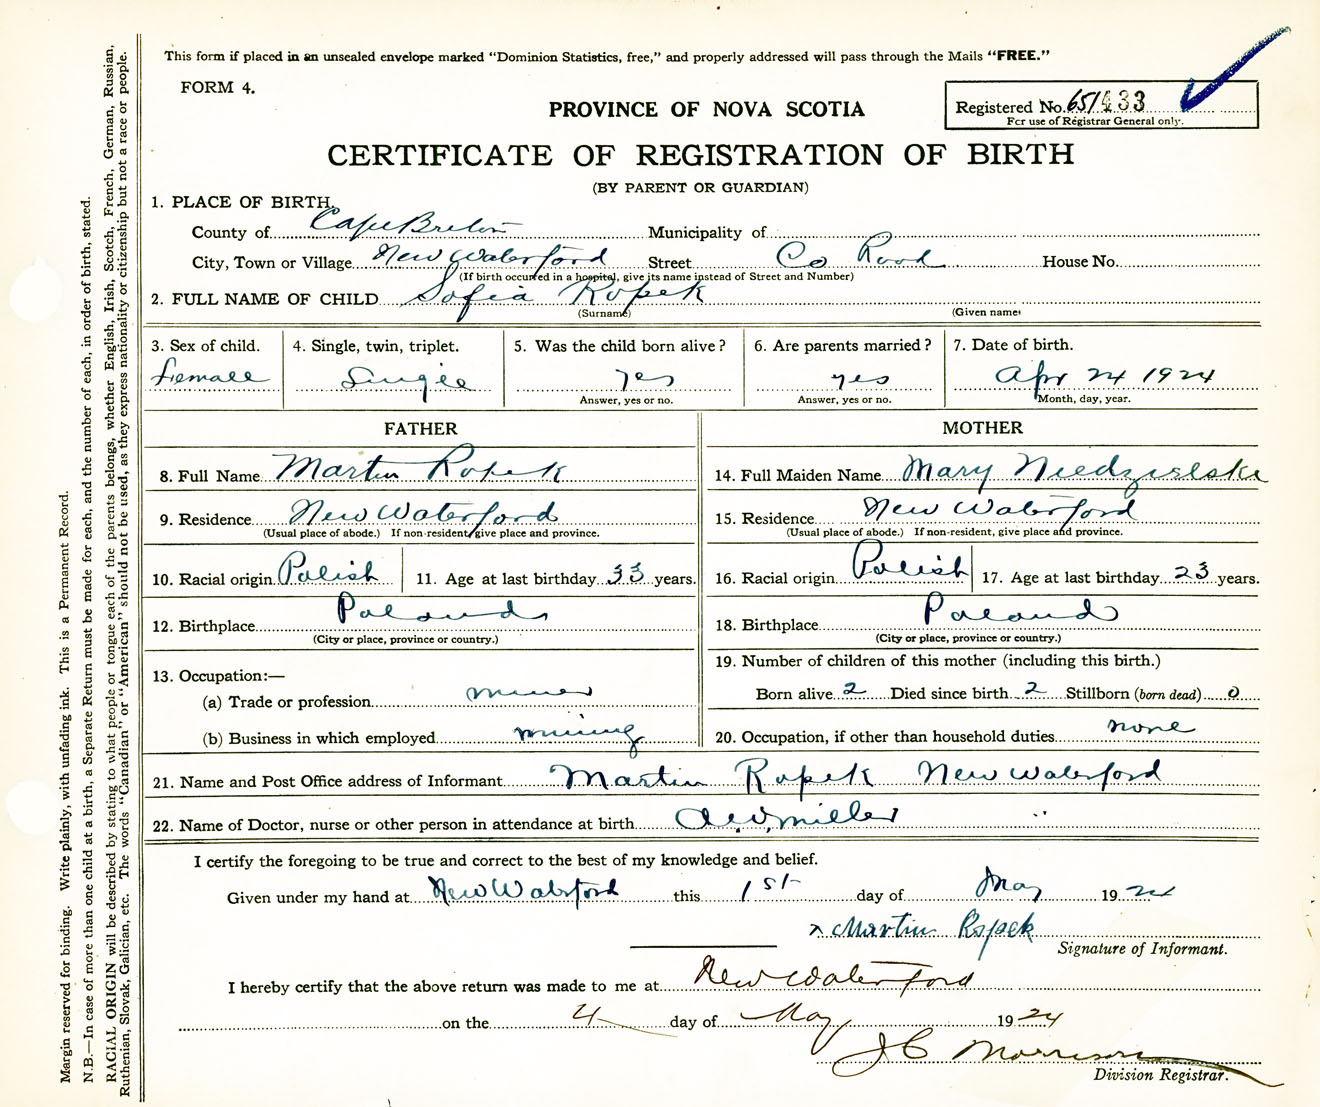 This form if placed in an unsealed envelope marked "Dominion Statistics, free," and properly addressed will pass through the Mails "FREE."
FORM 4.
PROVINCE OF NOVA SCOTIA
Registered No. 651433
For use of Registrar General only.
CERTIFICATE OF REGISTRATION OF BIRTH
(BY PARENT OR GUARDIAN)
1. PLACE OF BIRTH,
County of Cape Breton Municipality of
City, Town or Village New Waterford Street Co Road House No.
(If birth occurred in a hospital, give its name instead of Street and Number)
2. FULL NAME OF CHILD Sofia Ropek
(Surname) (Given name)
3. Sex of child. 4. Single, twin, triplet. 5. Was the child born alive? 6. Are parents married? 7. Date of birth.
Female Single yes yes Apr 24 1924
Answer, yes or no. Answer, yes or no. Month, day, year.
FATHER MOTHER
8. Full Name Martin Ropek 14. Full Maiden Name Mary Niedzielski
9. Residence New Waterford 15. Residence New Waterford
(Usual place of abode.) If non-resident, give place and province. (Usual place of abode.) If non-resident, give place and province.
10. Racial origin Polish 11. Age at last birthday 33 years. 16. Racial origin Polish 17. Age at last birthday 23 years.
12. Birthplace Poland 18. Birthplace Poland
(City or place, province or country.) (City or place, province or country.)
13. Occupation:— 19. Number of children of this mother (including this birth.)
(a) Trade or profession miner Born alive 2 Died since birth 2 Stillborn (born dead) 0
(b) Business in which employed mining 20. Occupation, if other than household duties none
21. Name and Post Office address of Informant Martin Ropek New Waterford
22. Name of Doctor, nurse or other person in attendance at birth Miller
I certify the foregoing to be true and correct to the best of my knowledge and belief.
Given under my hand at New Waterford this 1st day of May 1924
x Martin Ropek
Signature of Informant.
I hereby certify that the above return was made to me at New Waterford
on the 4 day of May 1924
J C Morrison
Division Registrar.
Margin reserved for binding. Write plainly, with unfading ink. This is a Permanent Record.
N.B.—In case of more than one child at a birth, a Separate Return must be made for each, and the number of each, in order of birth, stated.
RACIAL ORIGIN will be described by stating to what people or tongue each of the parents belongs, whether English, Irish, Scotch, French, German, Russian,
Ruthenian, Slovak, Galician, etc. The words "Canadian" or "American" should not be used, as they express nationality or citizenship but not a race or people.